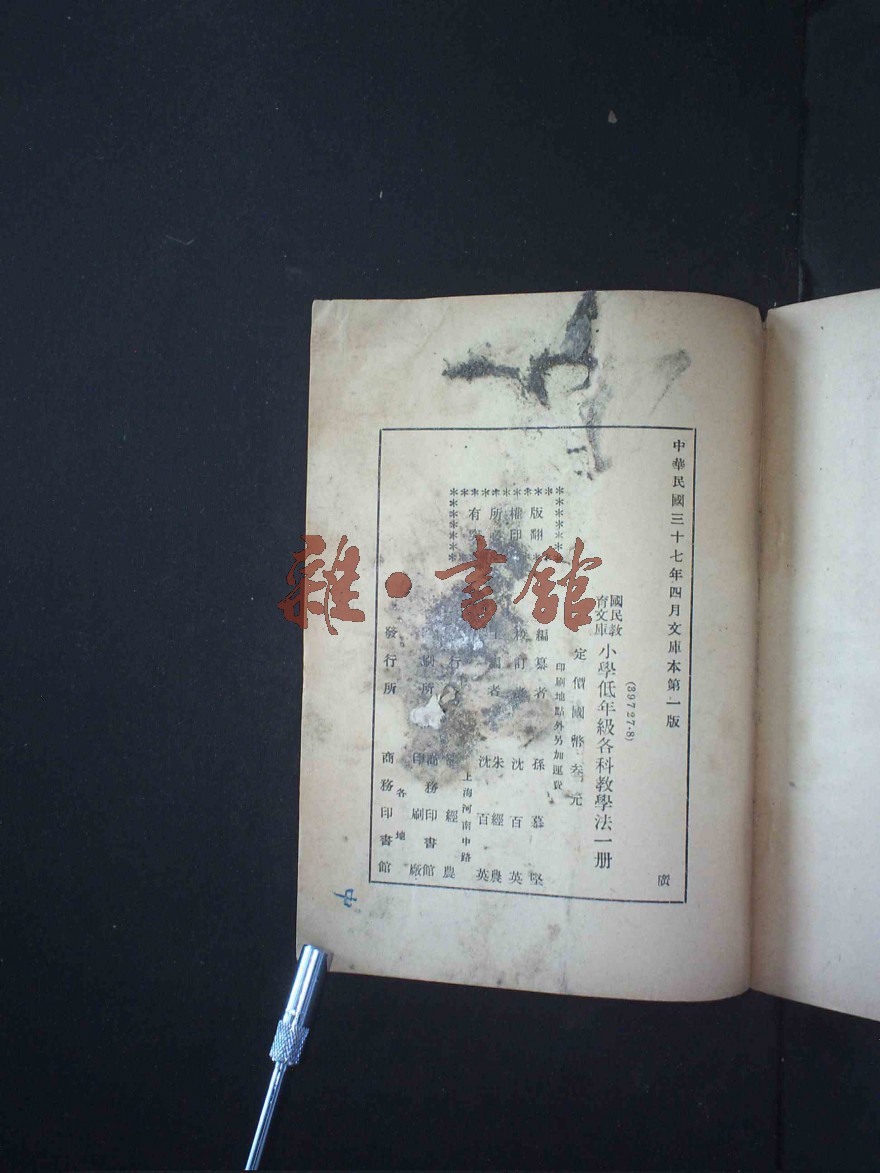 中華民國三十七年四月文庫本第一版
廣
(89727·8)
國民教育文庫 小學低年級各科教學法一册
定價國幣叁元
印刷地點外另加運費
版權所有
翻印必究
編纂者 孫慕堅
校訂者 沈百英
主編者 朱經農 沈百英
上海河南中路
發行人 經農
印刷所 商務印書館 印刷廠
各地
發行所 商務印書館
中
雜·書館